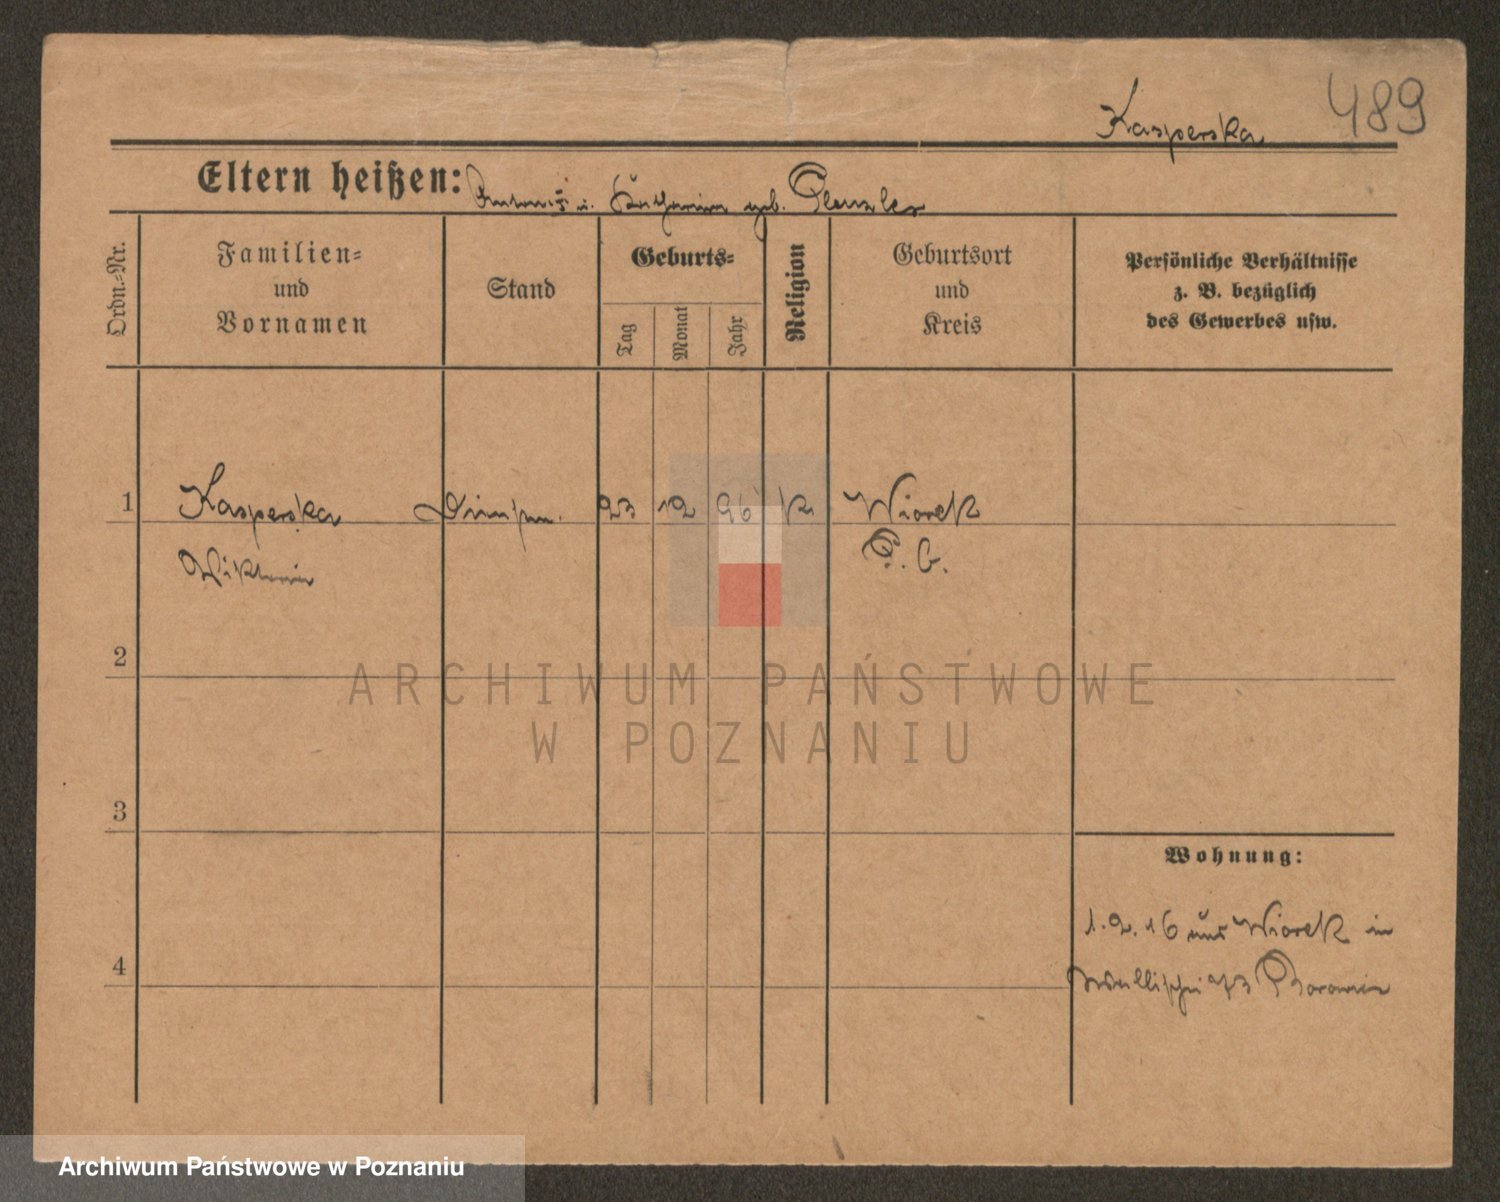 489
Kasperska
Eltern heißen: Anton u. Katharina geb.
Ordn.-Nr.
Familien-
und
Vornamen
Stand
Geburts-
Tag
Monat
Jahr
Religion
Geburtsort
und
Kreis
Persönliche Verhältnisse
z. B. bezüglich
des Gewerbes usw.
1 Kasperska 23 12 96 k Wiorek
Wiktoria P. O.
2
ARCHIWUM PAŃSTWOWE
W POZNANIU
3
Wohnung:
1.2.16 aus Wiorek in
4
Wallischei 73
Archiwum Państwowe w Poznaniu